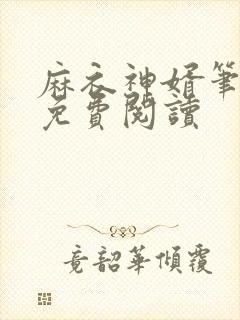 麻衣神婿筆
免費閱讀
竟韶華傾覆